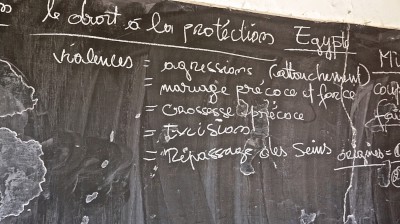 le droit à la protéction Egypte
violences = agressions (attouchement)
= mariage précoce et force
= Grossesse précoce
= Excisions
= Répassage des Seins